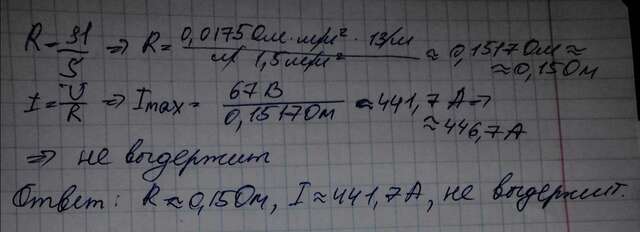 R = ρl/S => R = 0,0175 Ом·мм² · 13м / м 1,5 мм² ≈ 0,1517 Ом ≈
≈ 0,15 Ом
I = U/R => Imax = 67 В / 0,1517 Ом ≈ 441,7 А =>
≈ 446,7 А
=> не выдержит
Ответ: R ≈ 0,15 Ом, I ≈ 441,7 А, не выдержит.